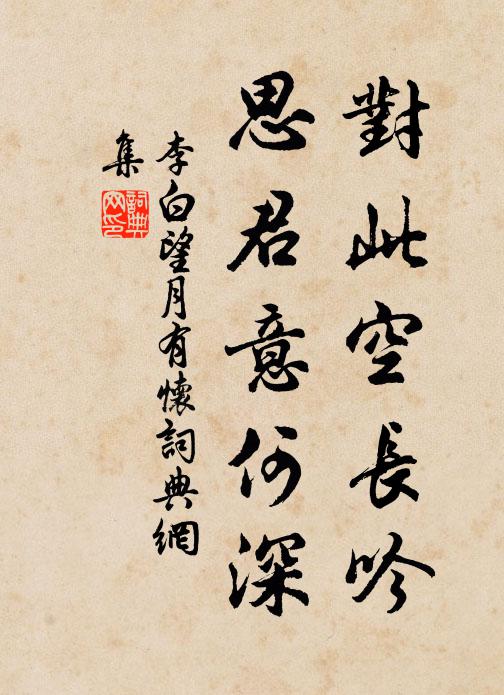 對此空長吟
思君意何深
李白望月有懷詞典網
集
詞典网印